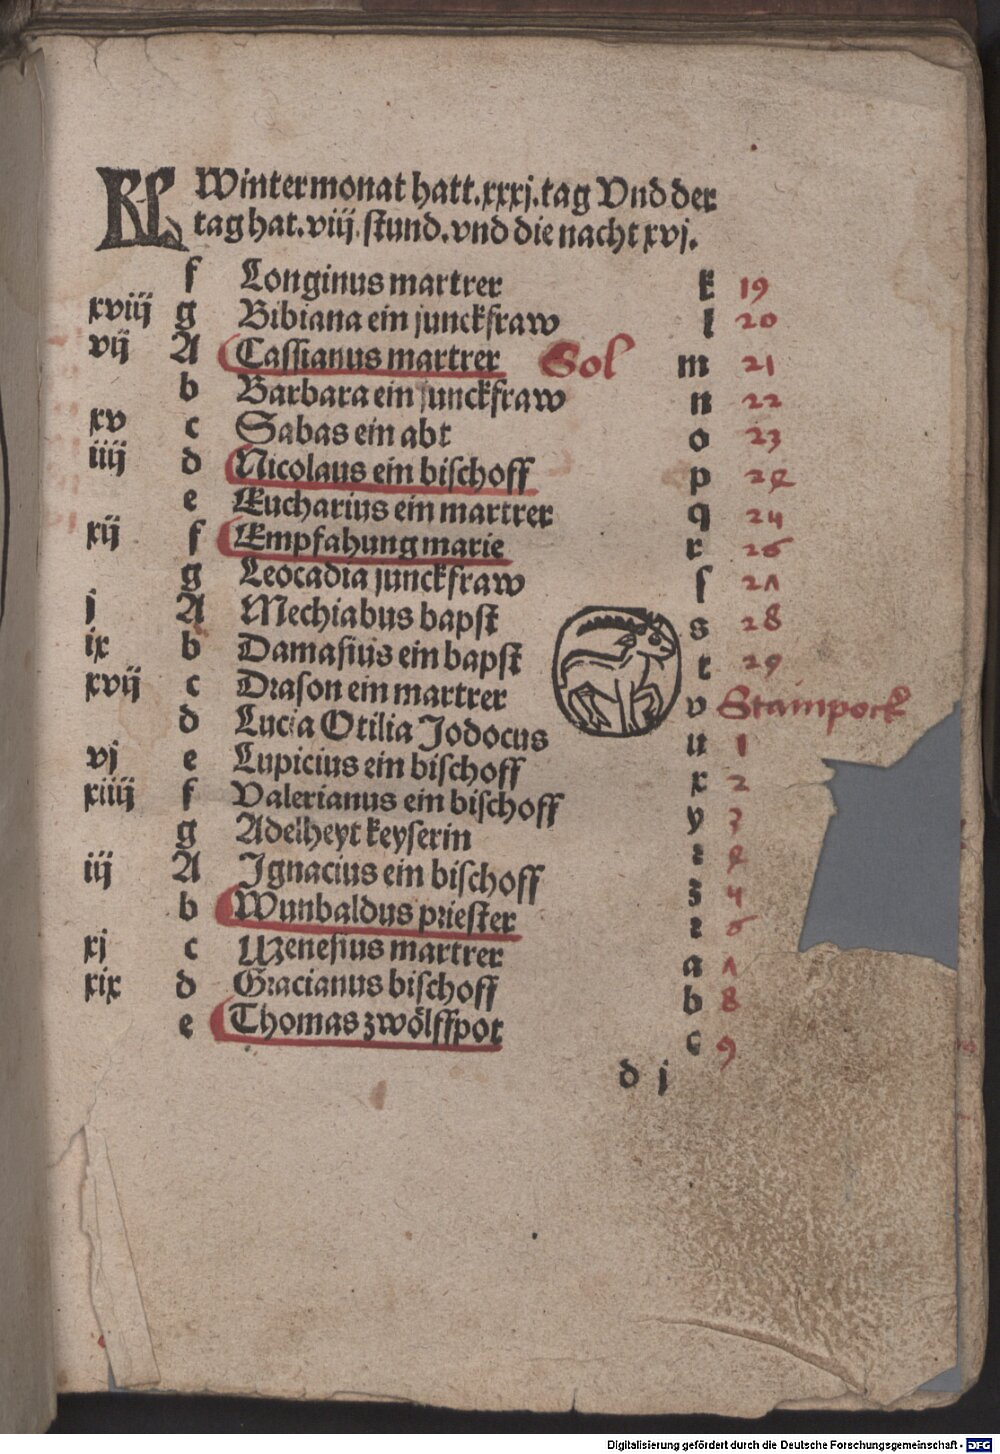 KL Wintermonat hatt.xxxj.tag Vnd der
tag hat.viij.stund.vnd die nacht xvj.
f Longinus martrer k 19
xviij g Bibiana ein junckfraw l 20
vij A Cassianus martrer Sol m 21
b Barbara ein junckfraw n 22
xv c Sabas ein abt o 23
iiij d Nicolaus ein bischoff p 24
e Eucharius ein martrer q 25
xij f Empfahung marie r 26
g Leocadia junckfraw ſ 27
j A Mechiabus bapst s 28
ix b Damasius ein bapst t 29
xvij c Drason ein martrer v Stainpock
d Lucia Otilia Jodocus u 1
vj e Lupicius ein bischoff x 2
xiiij f Valerianus ein bischoff y 3
g Adelheyt keyserin z 4
iij A Ignacius ein bischoff 3 5
b Wunbaldus priester z 6
xj c Menesius martrer a 7
xix d Gracianus bischoff b 8
e Thomas zwölffpot c 9
d j
Digitalisierung gefördert durch die Deutsche Forschungsgemeinschaft - DFG